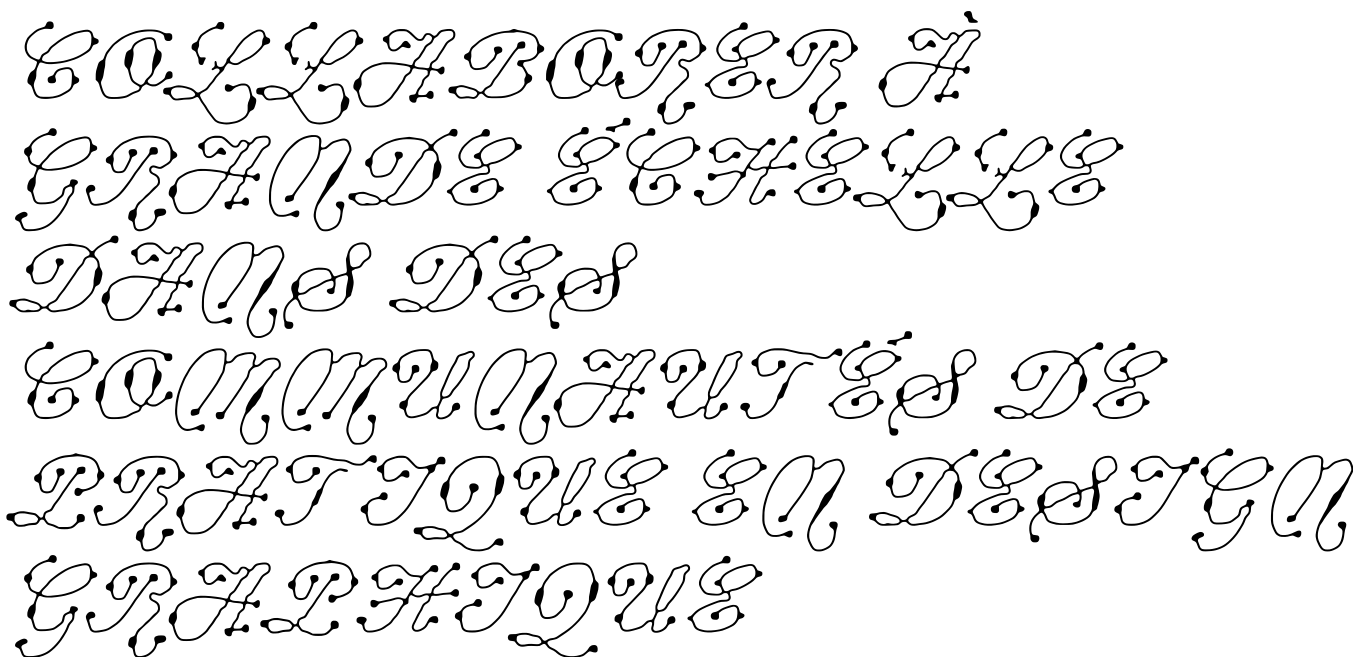 COLLABORER À
GRANDE ÉCHELLE
DANS DES
COMMUNAUTÉS DE
PRATIQUE EN DESIGN
GRAPHIQUE